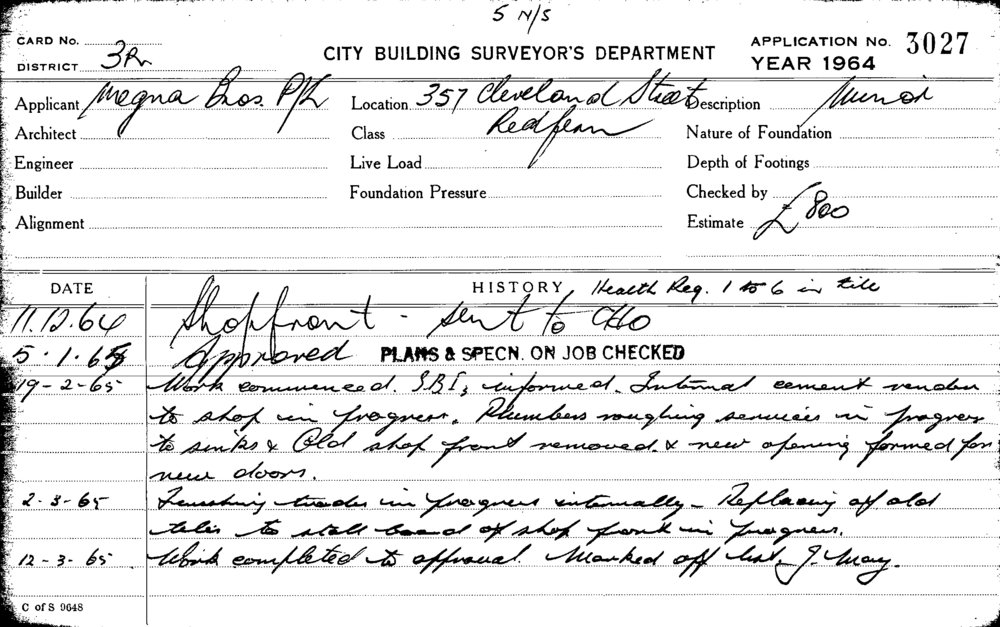 5 N/S
CARD No.
DISTRICT 3R
CITY BUILDING SURVEYOR'S DEPARTMENT
APPLICATION No. 3027
YEAR 1964
Applicant Megna Bros. P/L Location 357 Cleveland Street Description Minor
Architect Class Redfern Nature of Foundation
Engineer Live Load Depth of Footings
Builder Foundation Pressure Checked by
Alignment Estimate £800
DATE HISTORY Health Reg. 1 to 6 in file
11.12.64 Shopfront - sent to CHO
5.1.65 Approved PLANS & SPECN. ON JOB CHECKED
19-2-65 Work commenced. S.B.I. informed. Internal cement render
to shop in progress. Plumbers roughing services in progress
to sinks & Old shop front removed. & new opening formed for
new doors.
2-3-65 Finishing trades in progress internally - Replacing of old
tiles to stall board of shop front in progress.
12-3-65 Work completed to approval. Marked off list. J. May.
C of S 9648